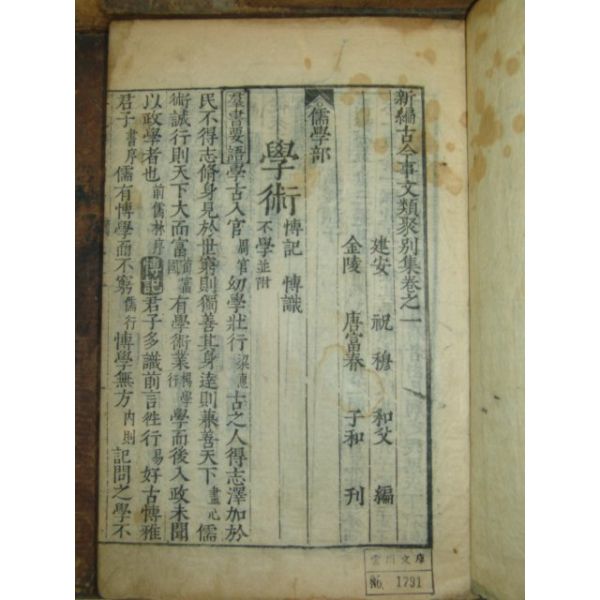 新編古今事文類聚別集卷之一
建安 祝穆 和父 編
金陵 唐富春 子和 刊
儒學部
學術
博記 博識
不學並附
羣書要語學古入官周官幼學壯行梁惠古之人得志澤加於
民不得志脩身見於世窮則獨善其身達則兼善天下盡心儒
術誠行則天下大而富荀富國有學術業楊學行學而後入政未聞
以政學者也前儒林序博記君子多識前言徃行易好古博雅
君子書序儒有博學而不窮儒行博學無方內則記問之學不
雲川文庫
№ 1791